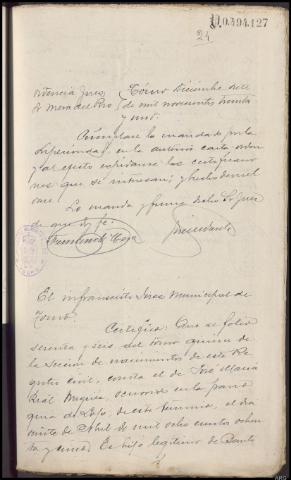 D.0.494.127
24
Providencia Juez Tomiño Diciembre diez
de mil novecientos treinta
y uno.
Cúmplase lo mandado por la
Superioridad en la anterior carta orden
y al efecto expídanse las certificacio
nes que se interesan; y hecho devuél
vase.
Lo manda y firma dicho Sr. Juez
de que doy fe.
El infrascrito Juez Municipal de
Certifico: Que al folio
sesenta y seis del tomo quince de
la Sección de nacimientos de este Re
gistro civil, consta el de José María
ocurrido en la parro
quia de de este término, el día
veinte de Abril de mil ochocientos ochen
ta y cinco. Es hijo legítimo de Benito